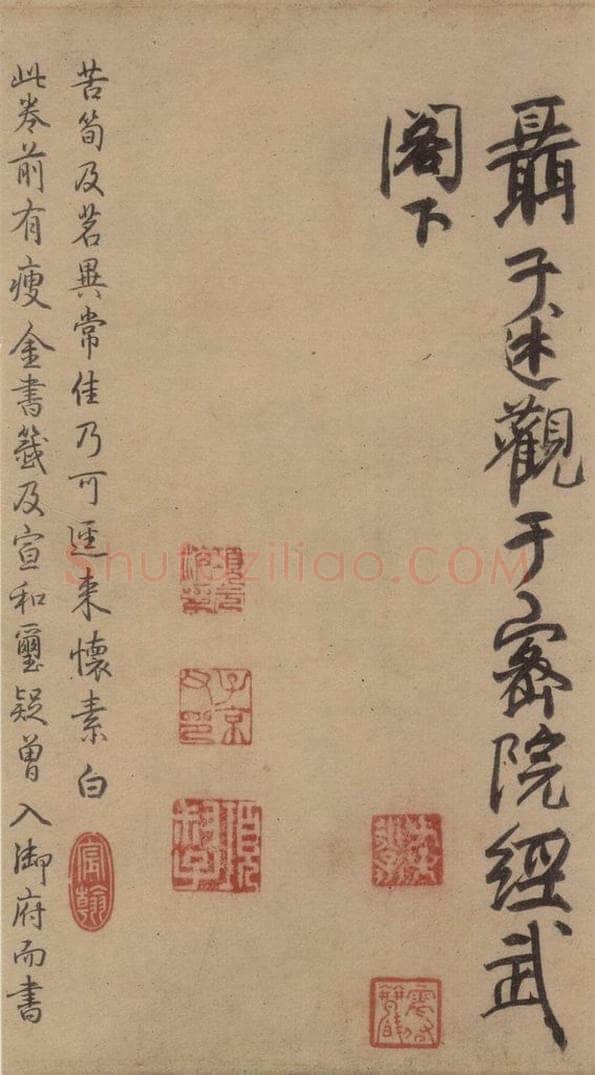 聶子述觀于密院經武
閣下
苦筍及茗異常佳乃可逕来懷素白
此卷前有瘦金書籤及宣和璽疑曾入御府而書
Shufaziliao.COM